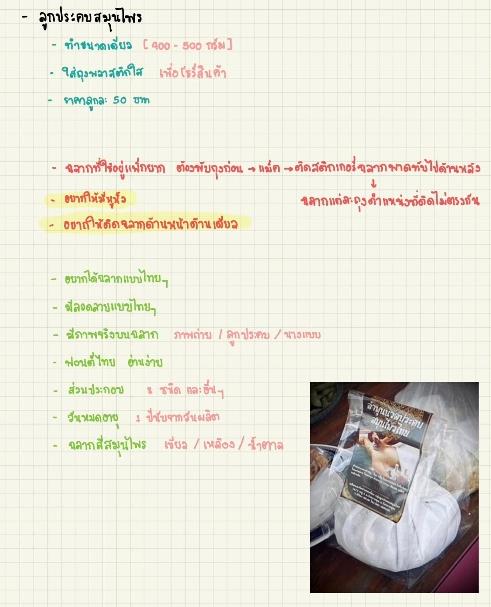 - ลูกประคบสมุนไพร
- ทำขนาดเดียว [400 - 500 กรัม]
- ใส่ถุงพลาสติกใส เพื่อโชว์สินค้า
- ราคาลูกละ 50 บาท
- ฉลากที่ใช้อยู่แพ็กยาก ต้องพับถุงก่อน → แม็ค → ติดสติกเกอร์ฉลากพาดทับไปด้านหลัง
↓
- อยากให้มีหูหิ้ว ฉลากแต่ละถุงตำแหน่งที่ติดไม่ตรงกัน
- อยากให้ติดฉลากด้านหน้าด้านเดียว
- อยากได้ฉลากแบบไทยๆ
- มีลวดลายแบบไทยๆ
- มีภาพจริงบนฉลาก ภาพถ่าย / ลูกประคบ / นางแบบ
- ฟอนต์ไทย อ่านง่าย
- ส่วนประกอบ ชนิด และอื่นๆ
- วันหมดอายุ 1 ปีนับจากวันผลิต
- ฉลากสีสมุนไพร เขียว / เหลือง / น้ำตาล
สมุนไพรไทย